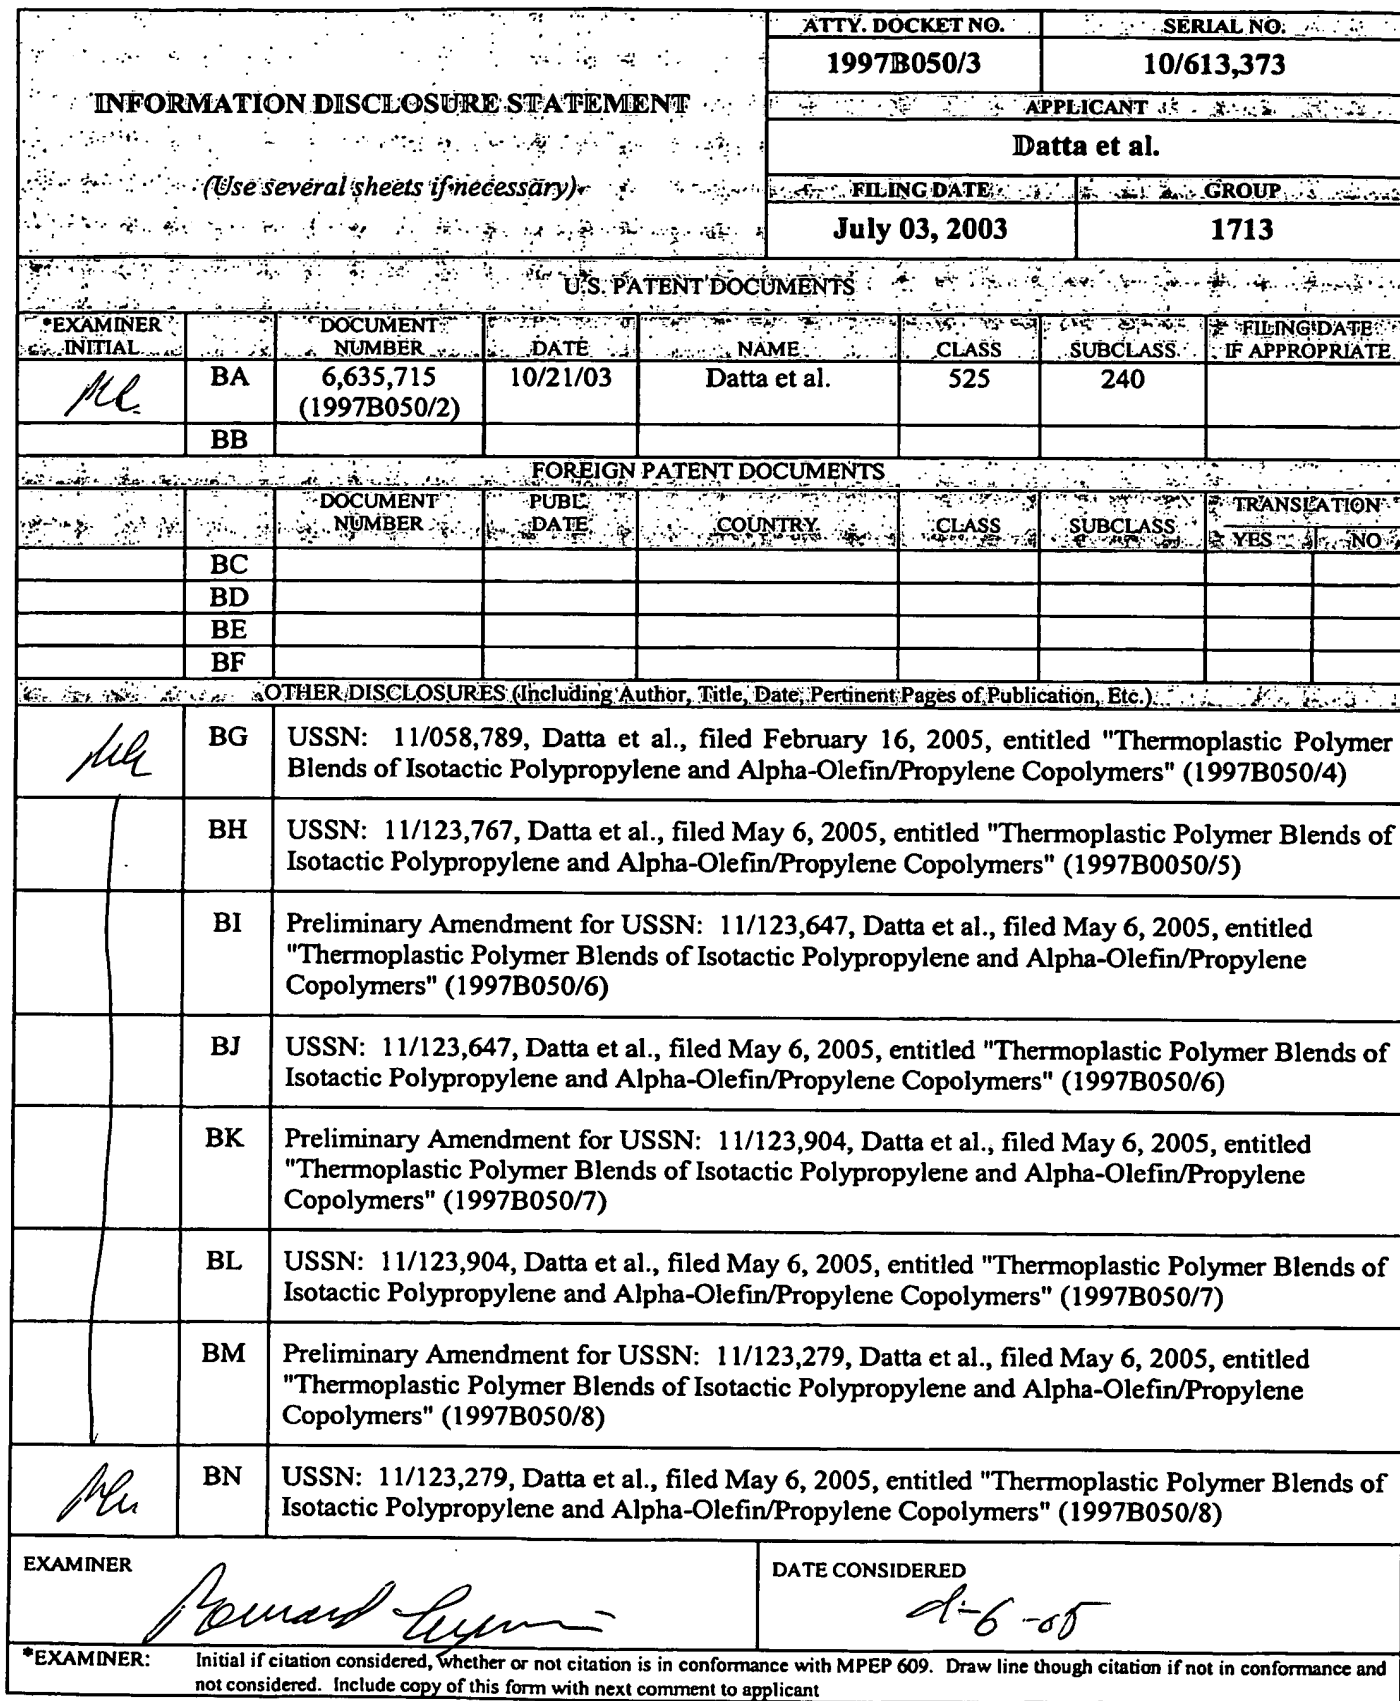 ATTY. DOCKET NO. SERIAL NO.
1997B050/3 10/613,373
INFORMATION DISCLOSURE STATEMENT
APPLICANT
Datta et al.
(Use several sheets if necessary)
FILING DATE GROUP
July 03, 2003 1713
U.S. PATENT DOCUMENTS
*EXAMINER INITIAL DOCUMENT NUMBER DATE NAME CLASS SUBCLASS FILING DATE IF APPROPRIATE
BA 6,635,715 10/21/03 Datta et al. 525 240
(1997B050/2)
BB
FOREIGN PATENT DOCUMENTS
DOCUMENT NUMBER PUBL. DATE COUNTRY CLASS SUBCLASS TRANSLATION
YES NO
BC
BD
BE
BF
OTHER DISCLOSURES (Including Author, Title, Date, Pertinent Pages of Publication, Etc.)
BG USSN: 11/058,789, Datta et al., filed February 16, 2005, entitled "Thermoplastic Polymer
Blends of Isotactic Polypropylene and Alpha-Olefin/Propylene Copolymers" (1997B050/4)
BH USSN: 11/123,767, Datta et al., filed May 6, 2005, entitled "Thermoplastic Polymer Blends of
Isotactic Polypropylene and Alpha-Olefin/Propylene Copolymers" (1997B0050/5)
BI Preliminary Amendment for USSN: 11/123,647, Datta et al., filed May 6, 2005, entitled
"Thermoplastic Polymer Blends of Isotactic Polypropylene and Alpha-Olefin/Propylene
Copolymers" (1997B050/6)
BJ USSN: 11/123,647, Datta et al., filed May 6, 2005, entitled "Thermoplastic Polymer Blends of
Isotactic Polypropylene and Alpha-Olefin/Propylene Copolymers" (1997B050/6)
BK Preliminary Amendment for USSN: 11/123,904, Datta et al., filed May 6, 2005, entitled
"Thermoplastic Polymer Blends of Isotactic Polypropylene and Alpha-Olefin/Propylene
Copolymers" (1997B050/7)
BL USSN: 11/123,904, Datta et al., filed May 6, 2005, entitled "Thermoplastic Polymer Blends of
Isotactic Polypropylene and Alpha-Olefin/Propylene Copolymers" (1997B050/7)
BM Preliminary Amendment for USSN: 11/123,279, Datta et al., filed May 6, 2005, entitled
"Thermoplastic Polymer Blends of Isotactic Polypropylene and Alpha-Olefin/Propylene
Copolymers" (1997B050/8)
BN USSN: 11/123,279, Datta et al., filed May 6, 2005, entitled "Thermoplastic Polymer Blends of
Isotactic Polypropylene and Alpha-Olefin/Propylene Copolymers" (1997B050/8)
EXAMINER DATE CONSIDERED
*EXAMINER: Initial if citation considered, whether or not citation is in conformance with MPEP 609. Draw line though citation if not in conformance and
not considered. Include copy of this form with next comment to applicant